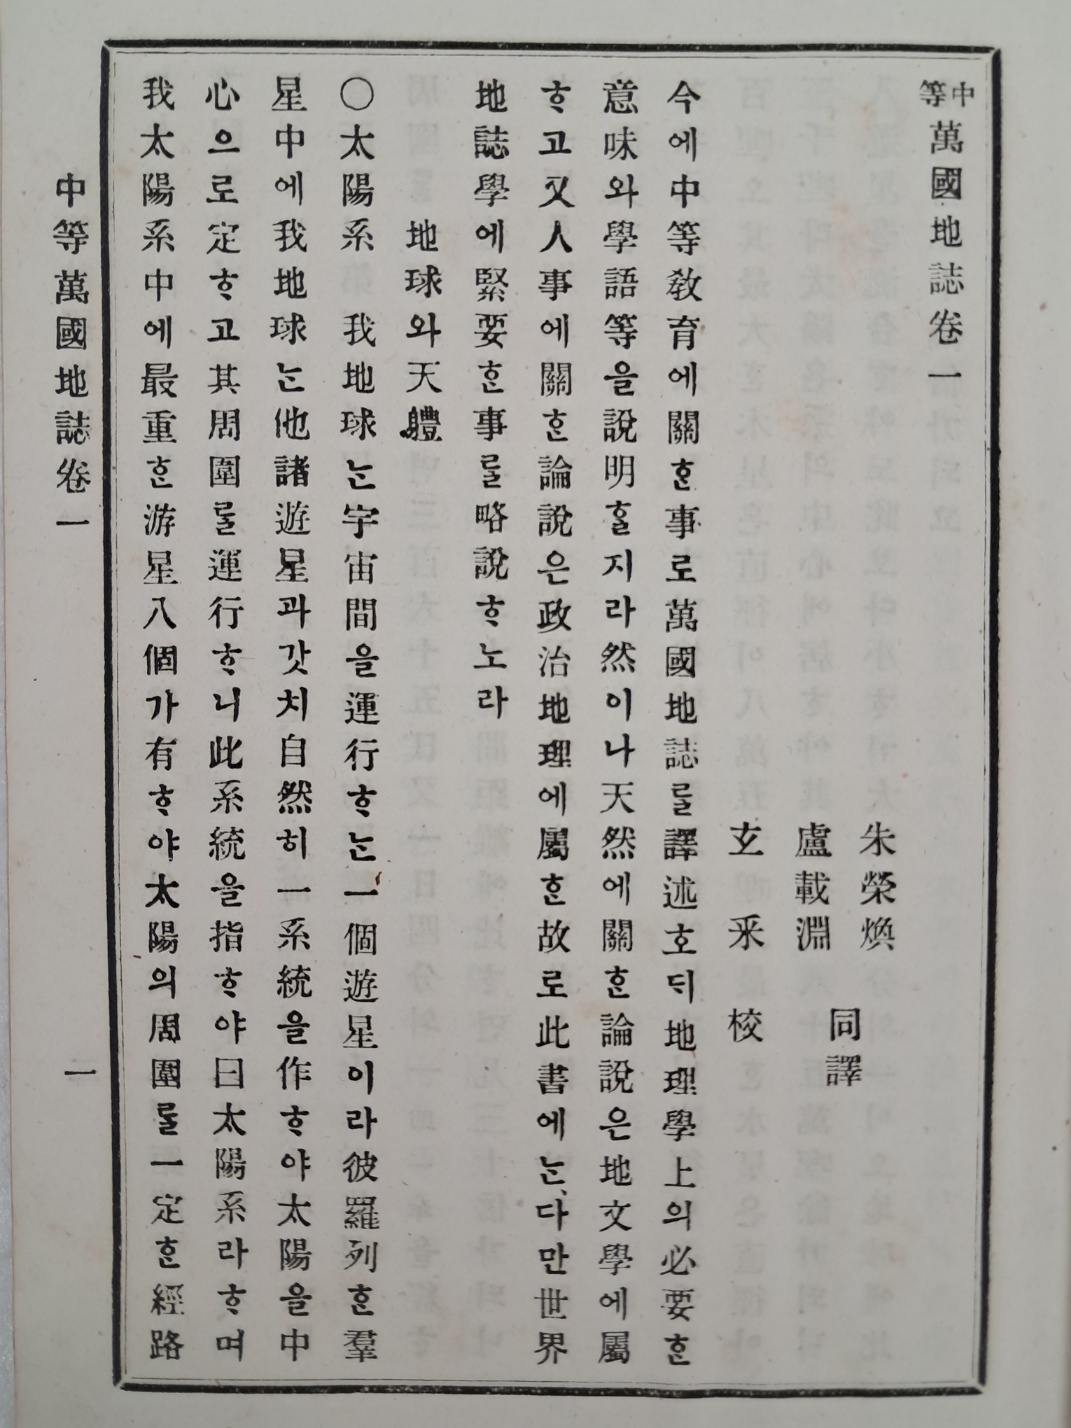 中等 萬國地誌卷一
朱榮煥
盧載淵 同譯
玄采 校
今에中等敎育에關ᄒᆞᆫ事로萬國地誌ᄅᆞᆯ譯述호ᄃᆡ地理學上의必要ᄒᆞᆫ
意味와學語等을說明ᄒᆞᆯ지라然이나天然에關ᄒᆞᆫ論說은地文學에屬
ᄒᆞ고又人事에關ᄒᆞᆫ論說은政治地理에屬ᄒᆞᆫ故로此書에ᄂᆞᆫ、다만世界
地誌學에緊要ᄒᆞᆫ事ᄅᆞᆯ略說ᄒᆞ노라
地球와天軆
〇太陽系 我地球ᄂᆞᆫ宇宙間을運行ᄒᆞᄂᆞᆫ一個遊星이라彼羅列ᄒᆞᆫ羣
星中에我地球ᄂᆞᆫ他諸遊星과갓치自然히一系統을作ᄒᆞ야太陽을中
心으로定ᄒᆞ고其周圍ᄅᆞᆯ運行ᄒᆞ니此系統을指ᄒᆞ야曰太陽系라ᄒᆞ며
我太陽系中에最重ᄒᆞᆫ游星八個가有ᄒᆞ야太陽의周圍ᄅᆞᆯ一定ᄒᆞᆫ經路
中等萬國地誌卷一
一